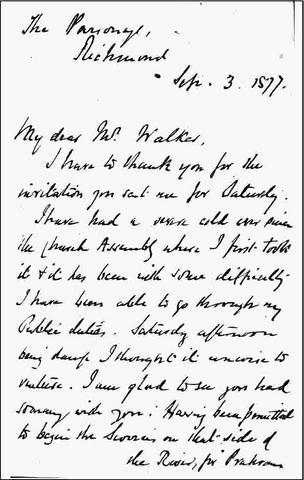 The Parsonage,
Richmond
Sep. 3. 1877.
My dear Mr. Walker,
I have to thank you for the
invitation you sent me for Saturday.
I have had a severe cold ever since
the Church Assembly where I first took
it & it has been with some difficulty
I have been able to go through my
Public duties. Saturday afternoon
being damp I thought it unwise to
venture. I am glad to see you had
so many with you. Having been permitted
to begin the Services on that side of
the River, for Prahran